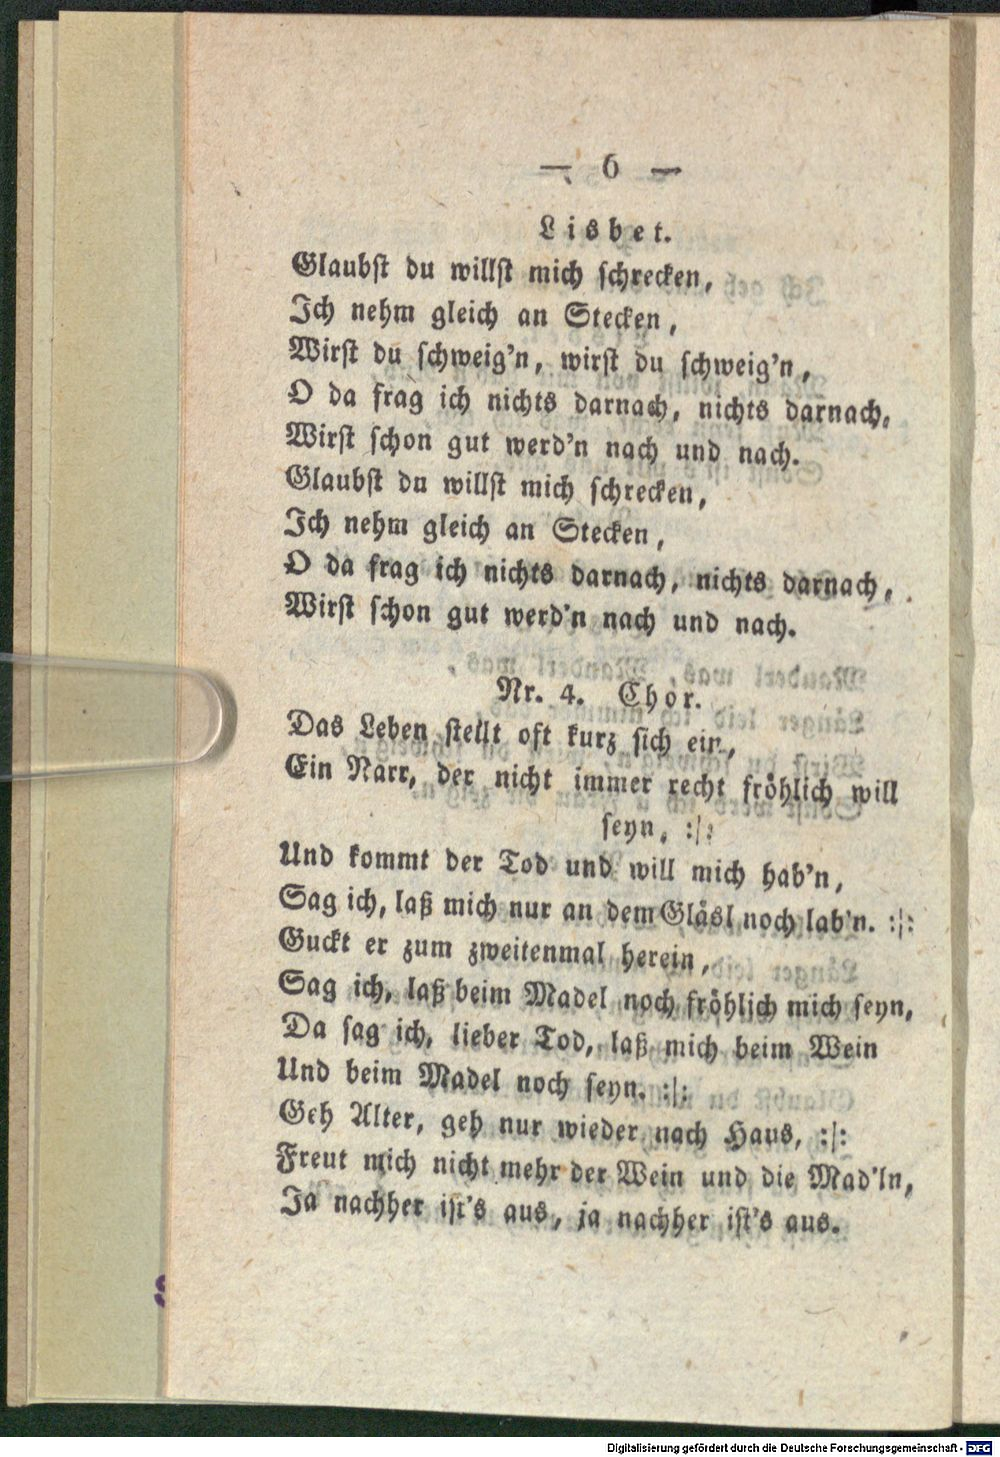 — 6 —
Lisbet.
Glaubst du willst mich schrecken,
Ich nehm gleich an Stecken,
Wirst du schweig'n, wirst du schweig'n,
O da frag ich nichts darnach, nichts darnach,
Wirst schon gut werd'n nach und nach.
Glaubst du willst mich schrecken,
Ich nehm gleich an Stecken,
O da frag ich nichts darnach, nichts darnach,
Wirst schon gut werd'n nach und nach.
Nr. 4. Chor.
Das Leben stellt oft kurz sich ein,
Ein Narr, der nicht immer recht fröhlich will
seyn, :|:
Und kommt der Tod und will mich hab'n,
Sag ich, laß mich nur an dem Gläsl noch lab'n. :|:
Guckt er zum zweitenmal herein,
Sag ich, laß beim Madel noch fröhlich mich seyn,
Da sag ich, lieber Tod, laß mich beim Wein
Und beim Madel noch seyn. :|:
Geh Alter, geh nur wieder nach Haus, :|:
Freut mich nicht mehr der Wein und die Mad'ln,
Ja nachher ist's aus, ja nachher ist's aus.
Digitalisierung gefördert durch die Deutsche Forschungsgemeinschaft - DFG